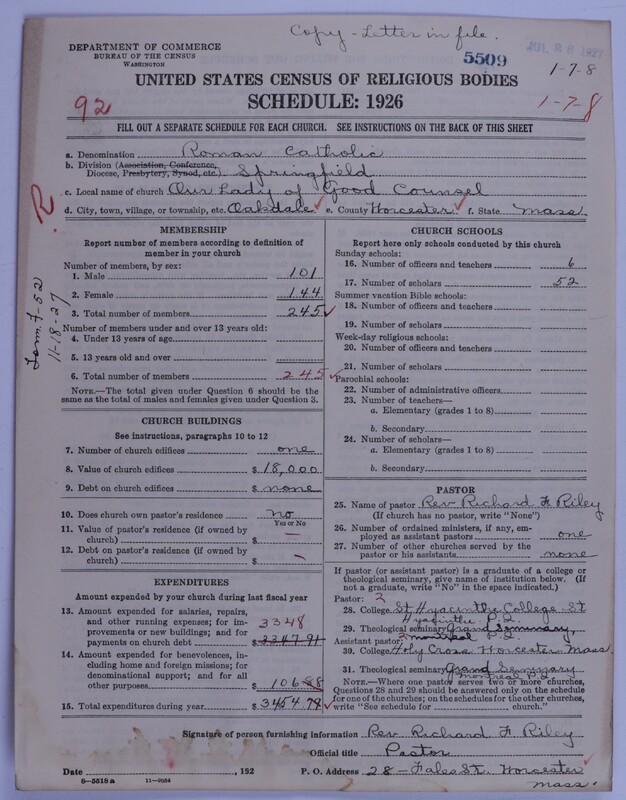 Copy - Letter in file.
DEPARTMENT OF COMMERCE
BUREAU OF THE CENSUS
WASHINGTON
5509
JUL 28 1927
1-7-8
UNITED STATES CENSUS OF RELIGIOUS BODIES
92
SCHEDULE: 1926
1-7-8
FILL OUT A SEPARATE SCHEDULE FOR EACH CHURCH. SEE INSTRUCTIONS ON THE BACK OF THIS SHEET
a. Denomination Roman Catholic
b. Division (Association, Conference, Diocese, Presbytery, Synod, etc.) Springfield
c. Local name of church Our Lady of Good Counsel
d. City, town, village, or township, etc. Oakdale e. County Worcester f. State Mass.
R
11-18-27
MEMBERSHIP
Report number of members according to definition of
member in your church
Number of members, by sex:
1. Male 101
2. Female 144
3. Total number of members 245
Number of members under and over 13 years old:
4. Under 13 years of age
5. 13 years old and over
6. Total number of members 245
NOTE.—The total given under Question 6 should be
same as the total of males and females given under Question 3.
CHURCH BUILDINGS
See instructions, paragraphs 10 to 12
7. Number of church edifices one
8. Value of church edifices $ 18,000
9. Debt on church edifices $ none
10. Does church own pastor's residence? No
Yes or No
11. Value of pastor's residence (if owned by
church) $ —
12. Debt on pastor's residence (if owned by
church) $ —
EXPENDITURES
Amount expended by your church during last fiscal year
13. Amount expended for salaries, repairs,
and other running expenses; for im-
provements or new buildings; and for
payments on church debt 3348 $ 3347.91
14. Amount expended for benevolences, in-
cluding home and foreign missions; for
denominational support; and for all
other purposes $ 106.88
15. Total expenditures during year $ 3454.79
CHURCH SCHOOLS
Report here only schools conducted by this church
Sunday schools:
16. Number of officers and teachers 6
17. Number of scholars 52
Summer vacation Bible schools:
18. Number of officers and teachers
19. Number of scholars
Week-day religious schools:
20. Number of officers and teachers
21. Number of scholars
Parochial schools:
22. Number of administrative officers
23. Number of teachers—
a. Elementary (grades 1 to 8)
b. Secondary
24. Number of scholars—
a. Elementary (grades 1 to 8)
b. Secondary
PASTOR
25. Name of pastor Rev Richard F. Riley
(If church has no pastor, write "None")
26. Number of ordained ministers, if any, em-
ployed as assistant pastors one
27. Number of other churches served by the
pastor or his assistants none
If pastor (or assistant pastor) is a graduate of a college or
theological seminary, give name of institution below. (If
not a graduate, write "No" in the space indicated.)
Pastor: 2
28. College St Hyacinthe College St
Hyacinthe P.Q.
29. Theological seminary Grand Seminary
Assistant pastor: 2 Montreal P.Q.
30. College Holy Cross Worcester Mass
31. Theological seminary Grand Seminary
Montreal P.Q.
NOTE.—Where one pastor serves two or more churches,
Questions 28 and 29 should be answered only on the schedule
for one of the churches; on the schedules for the other churches,
write "See schedule for church."
Signature of person furnishing information Rev. Richard F. Riley
Official title Pastor
Date , 192 P. O. Address 28 - Fales St., Worcester
Mass.
8-5518a 11-9054